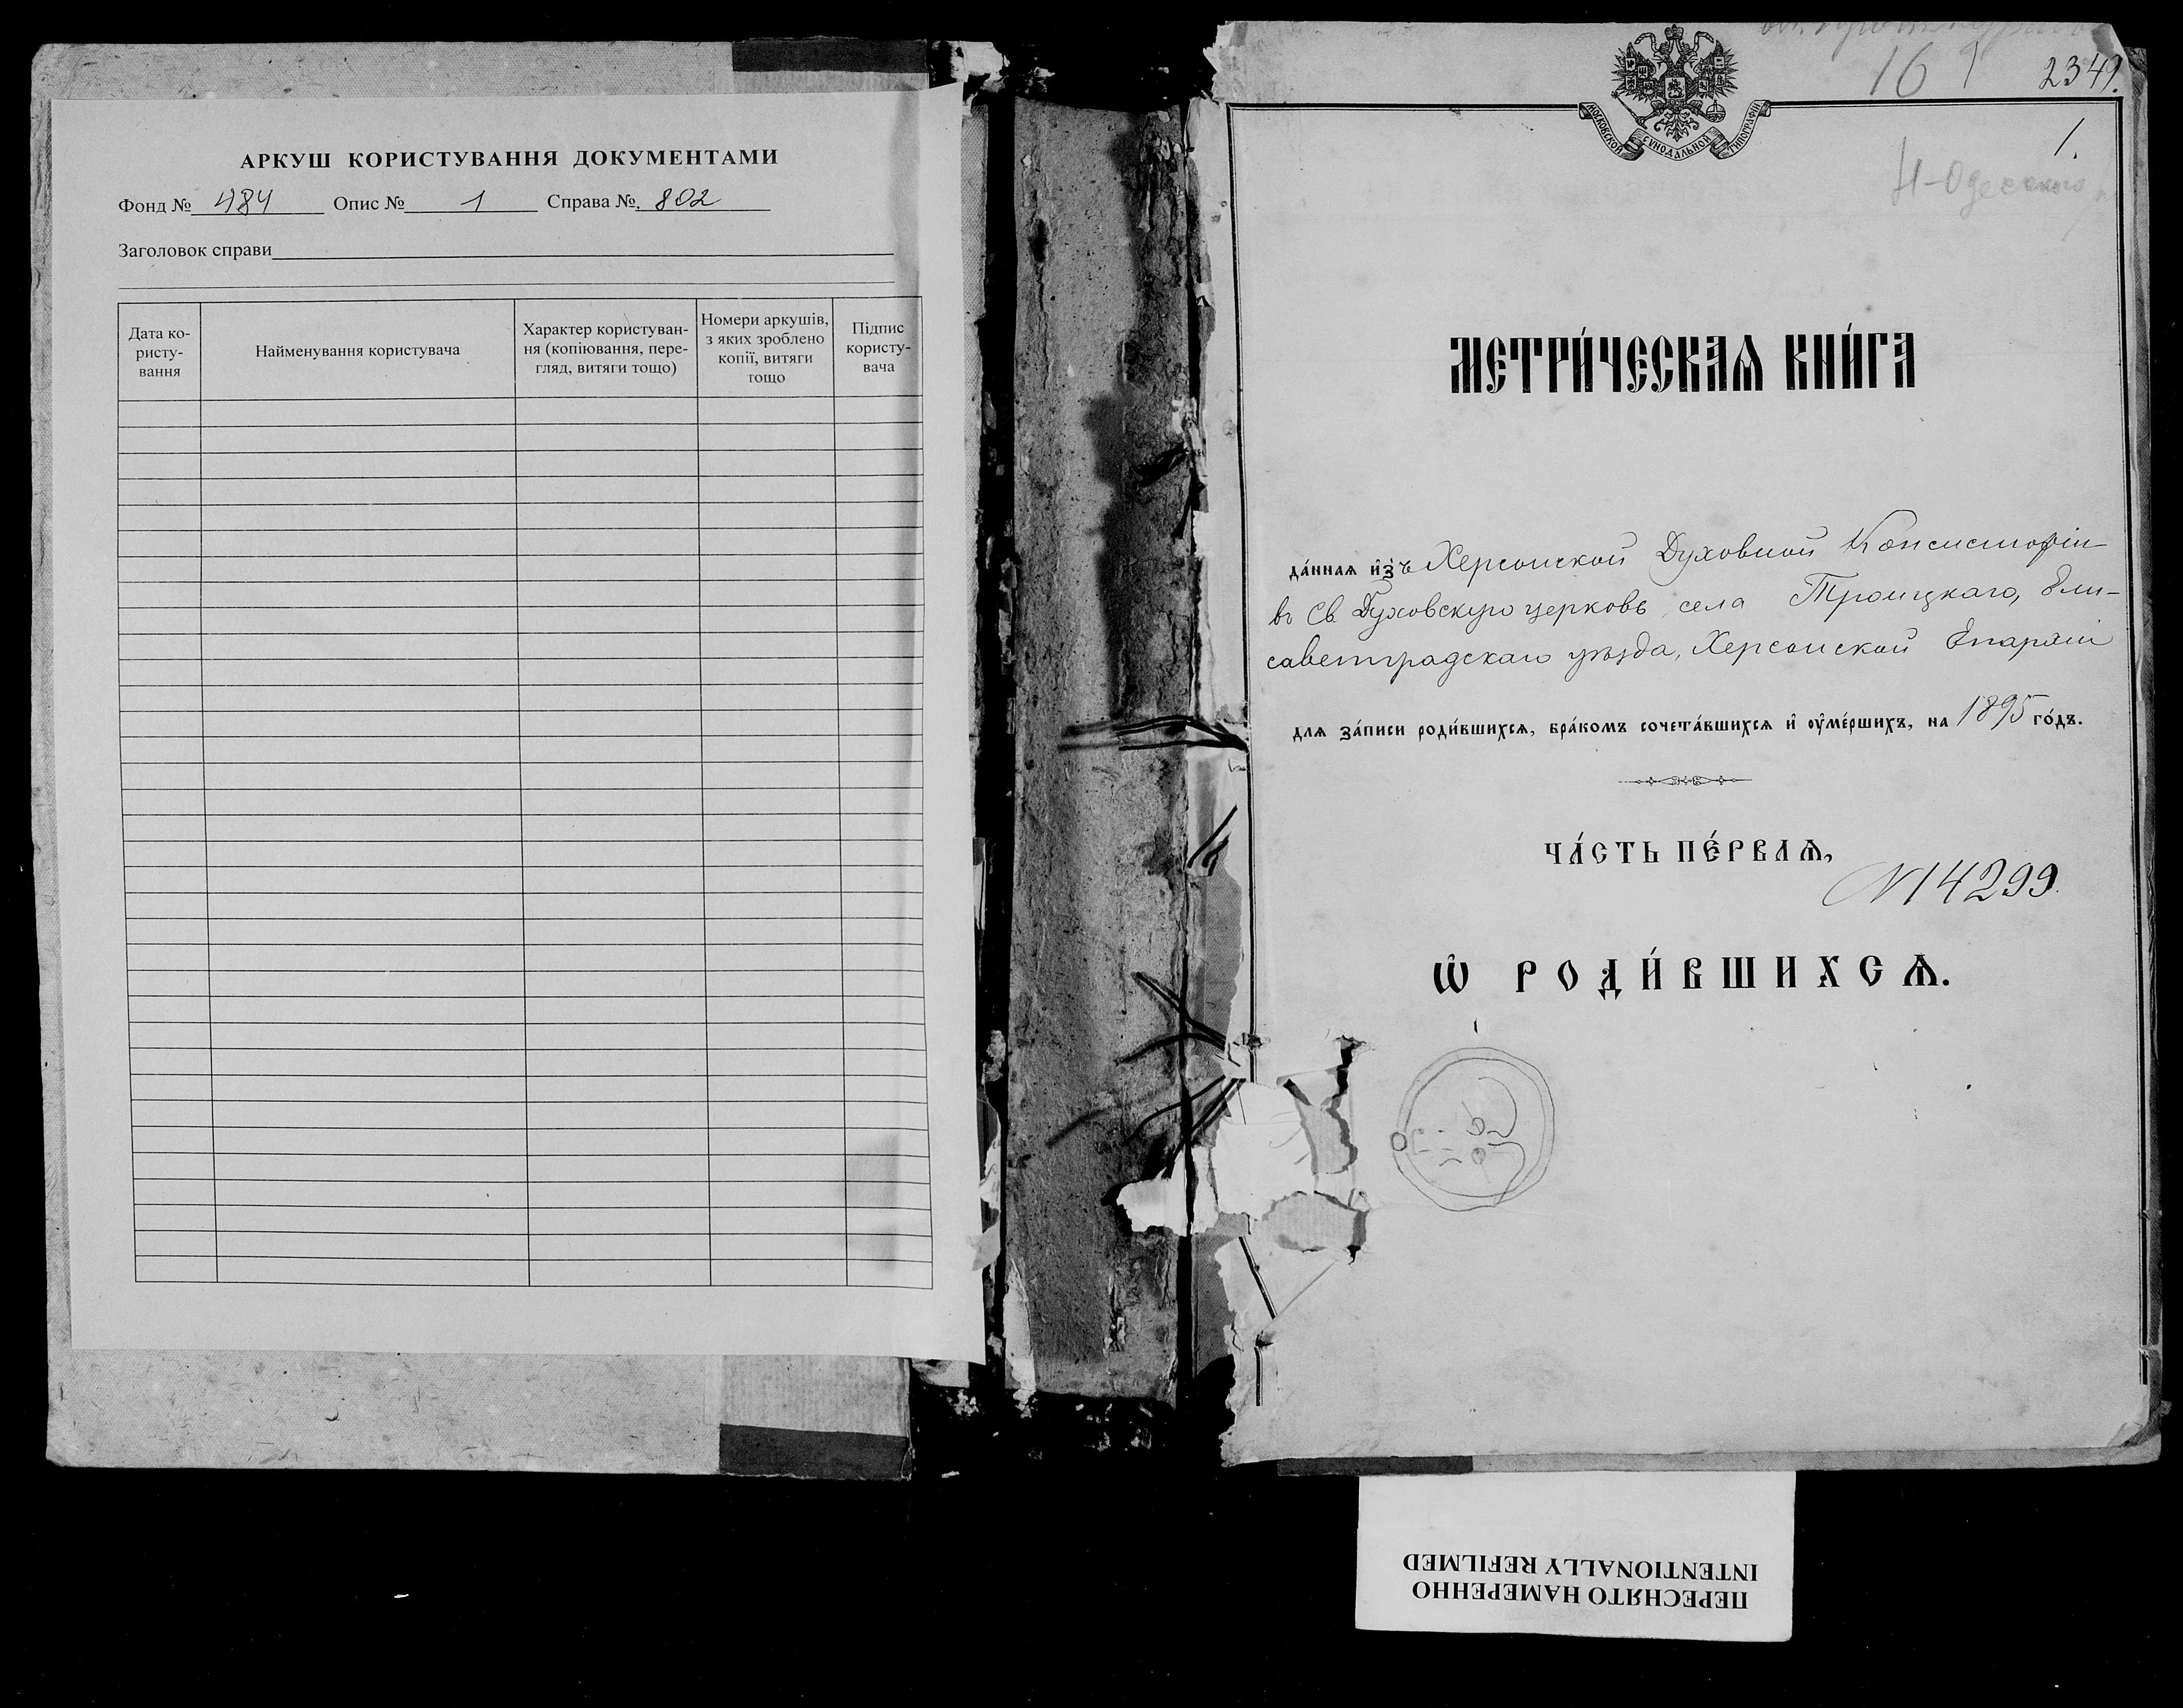 АРКУШ КОРИСТУВАННЯ ДОКУМЕНТАМИ
Фонд № 484 Опис № 1 Справа № 802
Заголовок справи
Дата ко-
ристу-
вання
Найменування користувача
Характер користуван-
ня (копіювання, пере-
гляд, витяги тощо)
Номери аркушів,
з яких зроблено
копії, витяги
тощо
Підпис
користу-
вача
161
2349.
МОСКОВСКОЙ СѴНОДАЛЬНОЙ ТИПОГРАФІИ
1.
Н-Одесского
МЕТРИ́ЧЕСКАѦ КНИ́ГА
да́нная и҆зъ Херсонской Духовной Консисторіи
въ Св. Духовскую церковь села Троицкаго, Ели-
саветградскаго уѣзда, Херсонской Епархіи
длѧ за́писи роди́вшихсѧ, бра́комъ сочета́вшихсѧ и҆ оу҆ме́ршихъ, на 1895 го́дъ.
ЧА́СТЬ ПЕ́РВАѦ,
N 14299.
Ѡ҆ РОДИ́ВШИХСѦ.
ПЕРЕСНЯТО НАМЕРЕННО
INTENTIONALLY REFILMED